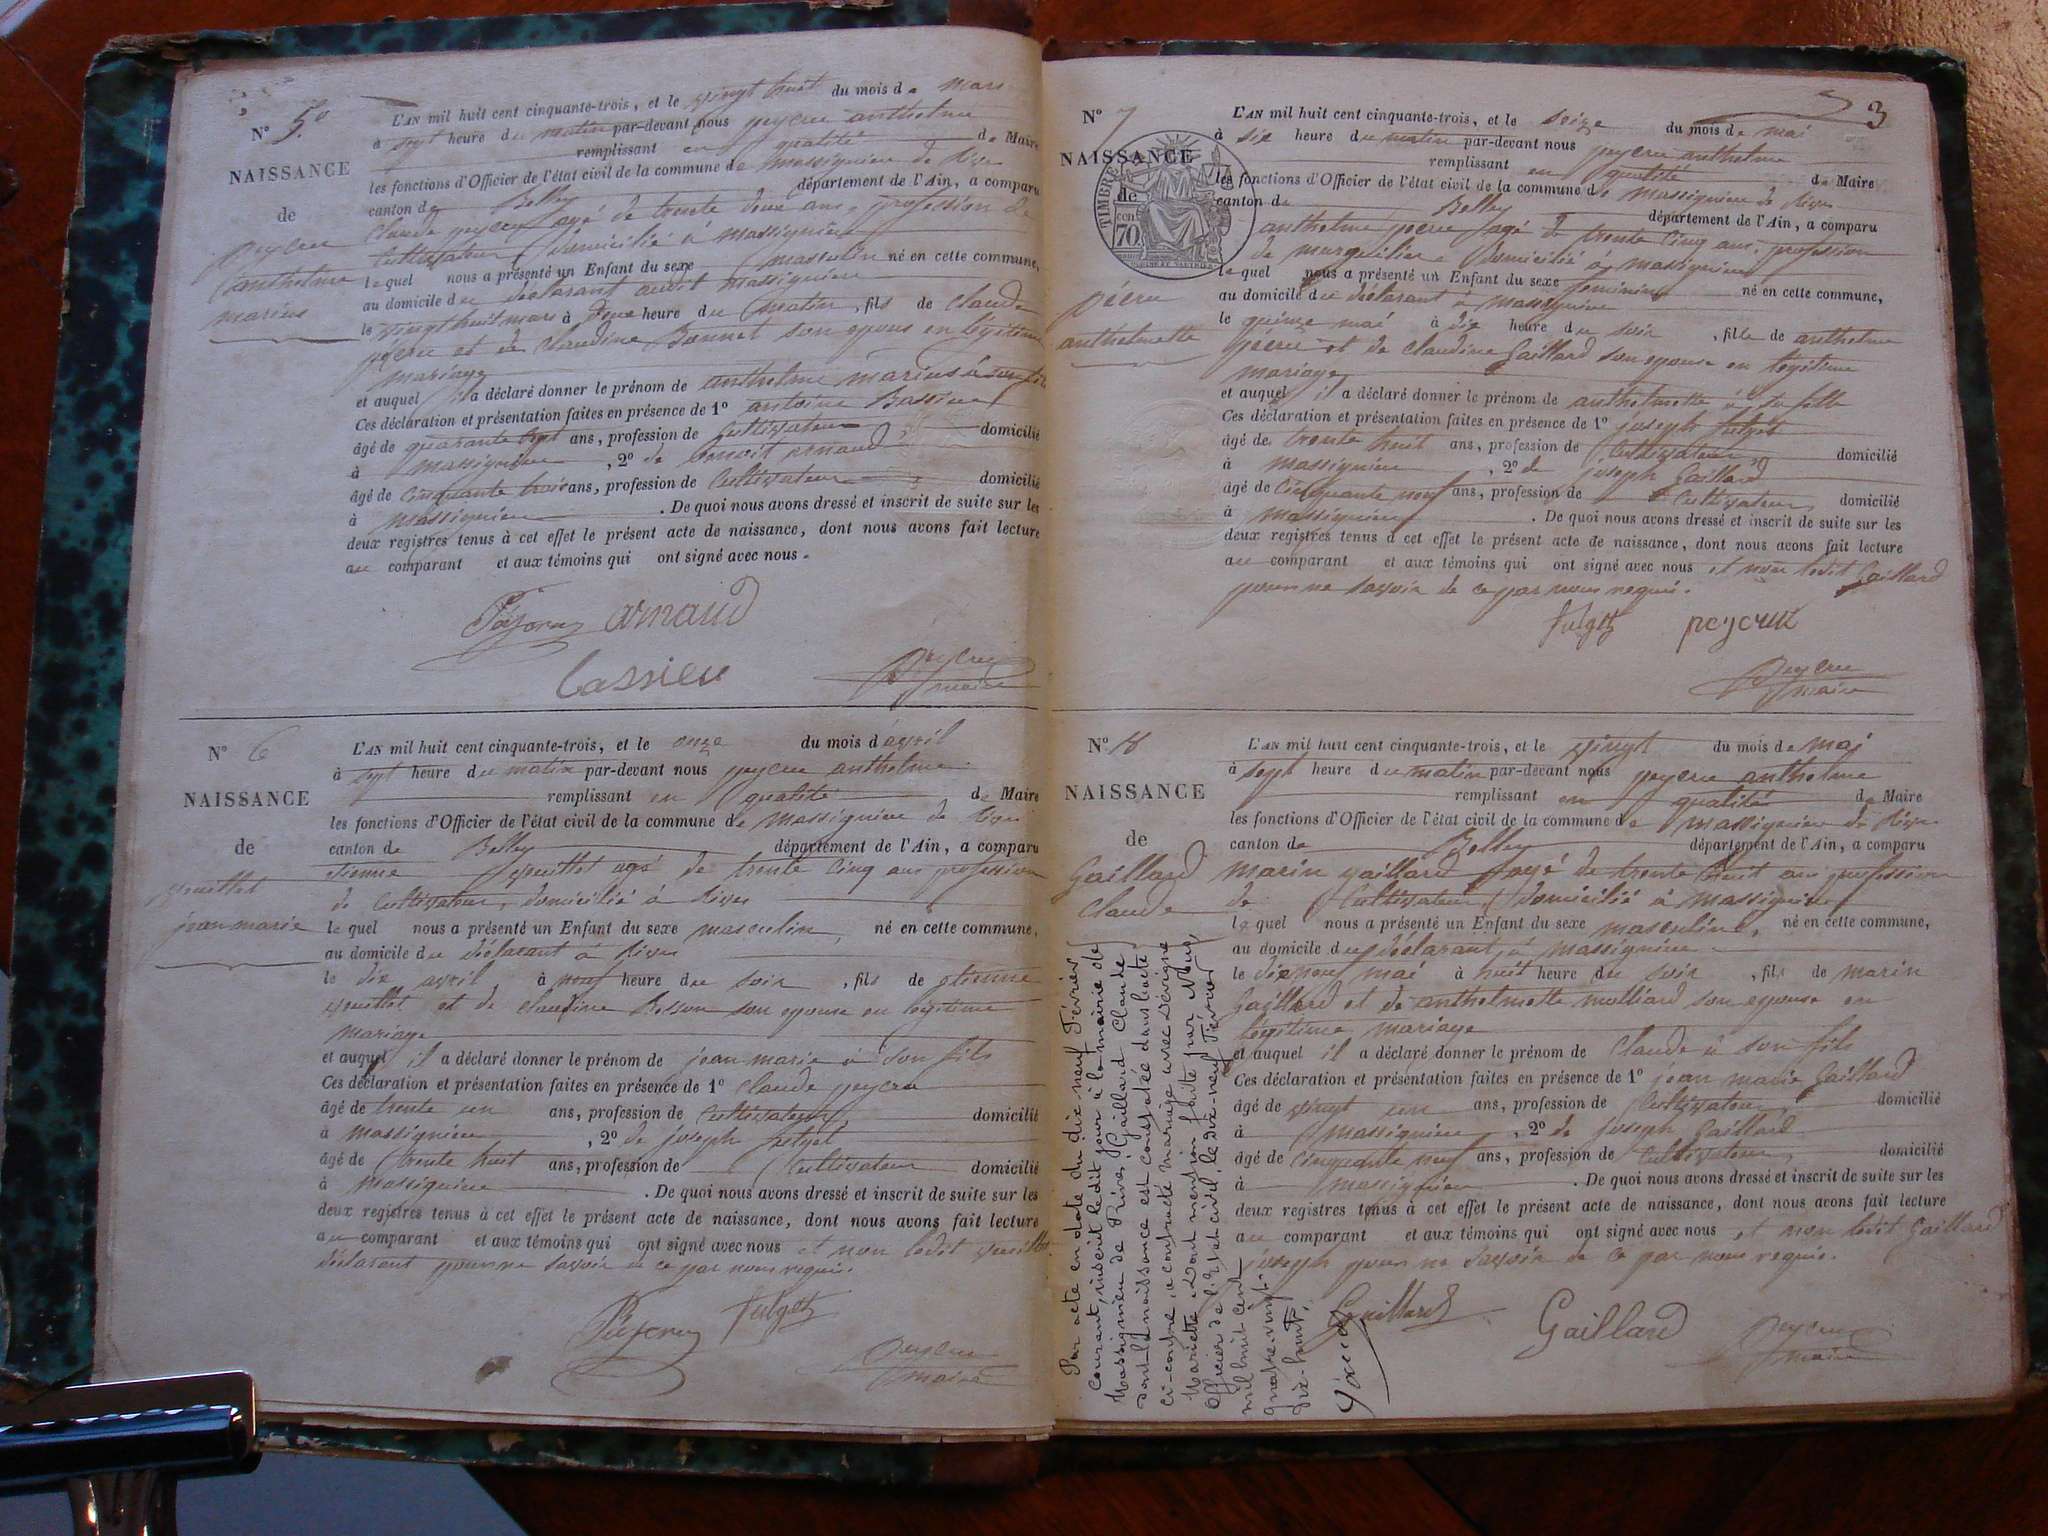 N° 5e
NAISSANCE
de
peycru
anthelme
marius
L'AN mil huit cent cinquante-trois, et le vingt huit du mois de mars
à sept heure du matin par-devant nous peycru anthelme
remplissant en qualité de Maire
les fonctions d'Officier de l'état civil de la commune de massignieu de Rives
canton de Belley département de l'Ain, a comparu
Claude peycru agé de trente deux ans, profession de
Cultivateur domicilié à massignieu
lequel nous a présenté un Enfant du sexe masculin né en cette commune,
au domicile du déclarant audit massignieu
le vingt huit mars à deux heure du matin, fils de Claude
pécru et de Claudine Bonnet son epouse en légitime
mariage
et auquel il a déclaré donner le prénom de anthelme marius à son fils
Ces déclaration et présentation faites en présence de 1° antoine
âgé de quarante sept ans, profession de Cultivateur domicilié
à massignieu, 2° de benoit arnaud
âgé de Cinquante trois ans, profession de Cultivateur domicilié
à massignieu. De quoi nous avons dressé et inscrit de suite sur les
deux registres tenus à cet effet le présent acte de naissance, dont nous avons fait lecture
au comparant et aux témoins qui ont signé avec nous.
arnaud
Cassieu
Peycru
maire
N° 6
NAISSANCE
de
vouillot
jean marie
L'AN mil huit cent cinquante-trois, et le onze du mois d'avril
à sept heure du matin par-devant nous peycru anthelme
remplissant en qualité de Maire
les fonctions d'Officier de l'état civil de la commune de massignieu de Rives
canton de Belley département de l'Ain, a comparu
etienne vouillot agé de trente Cinq ans profession
de Cultivateur, domicilié à Rives
lequel nous a présenté un Enfant du sexe masculin, né en cette commune,
au domicile du déclarant à Rives
le dix avril à neuf heure du soir, fils de etienne
vouillot et de claudine Besson son epouse en légitime
mariage
et auquel il a déclaré donner le prénom de jean marie à son fils
Ces déclaration et présentation faites en présence de 1° Claude peycru
âgé de trente un ans, profession de Cultivateur, domicilié
à massignieu, 2° de joseph fulget
âgé de trente huit ans, profession de Cultivateur domicilié
à massignieu. De quoi nous avons dressé et inscrit de suite sur les
deux registres tenus à cet effet le présent acte de naissance, dont nous avons fait lecture
au comparant et aux témoins qui ont signé avec nous et non ledit vouillot
déclarant pour ne savoir de ce par nous requis.
fulget
Peycru
maire
3
N° 7
NAISSANCE
de
TIMBRE
70
pécru
anthelmette
L'AN mil huit cent cinquante-trois, et le seize du mois de mai
à six heure du matin par-devant nous peycru anthelme
remplissant en qualité de Maire
les fonctions d'Officier de l'état civil de la commune de massignieu de Rives
canton de Belley département de l'Ain, a comparu
anthelme pécru agé de trente Cinq ans, profession
de marguilier domicilié à massignieu
lequel nous a présenté un Enfant du sexe feminin né en cette commune,
au domicile du déclarant à massignieu
le quinze mai à dix heure du soir, fille de anthelme
pécru et de Claudine Gaillard son epouse en légitime
mariage
et auquel il a déclaré donner le prénom de anthelmette à sa fille
Ces déclaration et présentation faites en présence de 1° joseph fulget
âgé de trente huit ans, profession de Cultivateur domicilié
à massignieu, 2° de joseph Gaillard
âgé de Cinquante neuf ans, profession de Cultivateur domicilié
à massignieu. De quoi nous avons dressé et inscrit de suite sur les
deux registres tenus à cet effet le présent acte de naissance, dont nous avons fait lecture
au comparant et aux témoins qui ont signé avec nous et non ledit Gaillard
pour ne savoir de ce par nous requis.
fulget peycru
Peycru
maire
N° 8
NAISSANCE
de
Gaillard
Claude
L'AN mil huit cent cinquante-trois, et le vingt du mois de mai
à sept heure du matin par-devant nous peycru anthelme
remplissant en qualité de Maire
les fonctions d'Officier de l'état civil de la commune de massignieu de Rives
canton de Belley département de l'Ain, a comparu
marin gaillard agé de trente huit ans profession
de Cultivateur, domicilié à massignieu
lequel nous a présenté un Enfant du sexe masculin, né en cette commune,
au domicile du déclarant, à massignieu
le dixneuf mai à huit heure du soir, fils de marin
Gaillard et de anthelmette molliard son epouse en
légitime mariage
et auquel il a déclaré donner le prénom de Claude à son fils
Ces déclaration et présentation faites en présence de 1° jean marie Gaillard
âgé de vingt un ans, profession de Cultivateur, domicilié
à massignieu, 2° de joseph Gaillard
âgé de Cinquante neuf ans, profession de Cultivateur, domicilié
à massignieu. De quoi nous avons dressé et inscrit de suite sur les
deux registres tenus à cet effet le présent acte de naissance, dont nous avons fait lecture
au comparant et aux témoins qui ont signé avec nous et non ledit Gaillard
joseph pour ne savoir de ce par nous requis.
Gaillard Gaillard
Peycru
maire
Par acte en date du dix neuf Février
courant, inscrit ledit jour à la mairie de
Massignieu de Rives, Gaillard Claude
dont la naissance est constatée dans l'acte
ci-contre, a contracté mariage avec Dévigne
Mariette. Dont mention faite par Nous,
Officier de l'Etat civil, le dix-neuf Février
mil huit cent
quatre-vingt-
dix-huit.